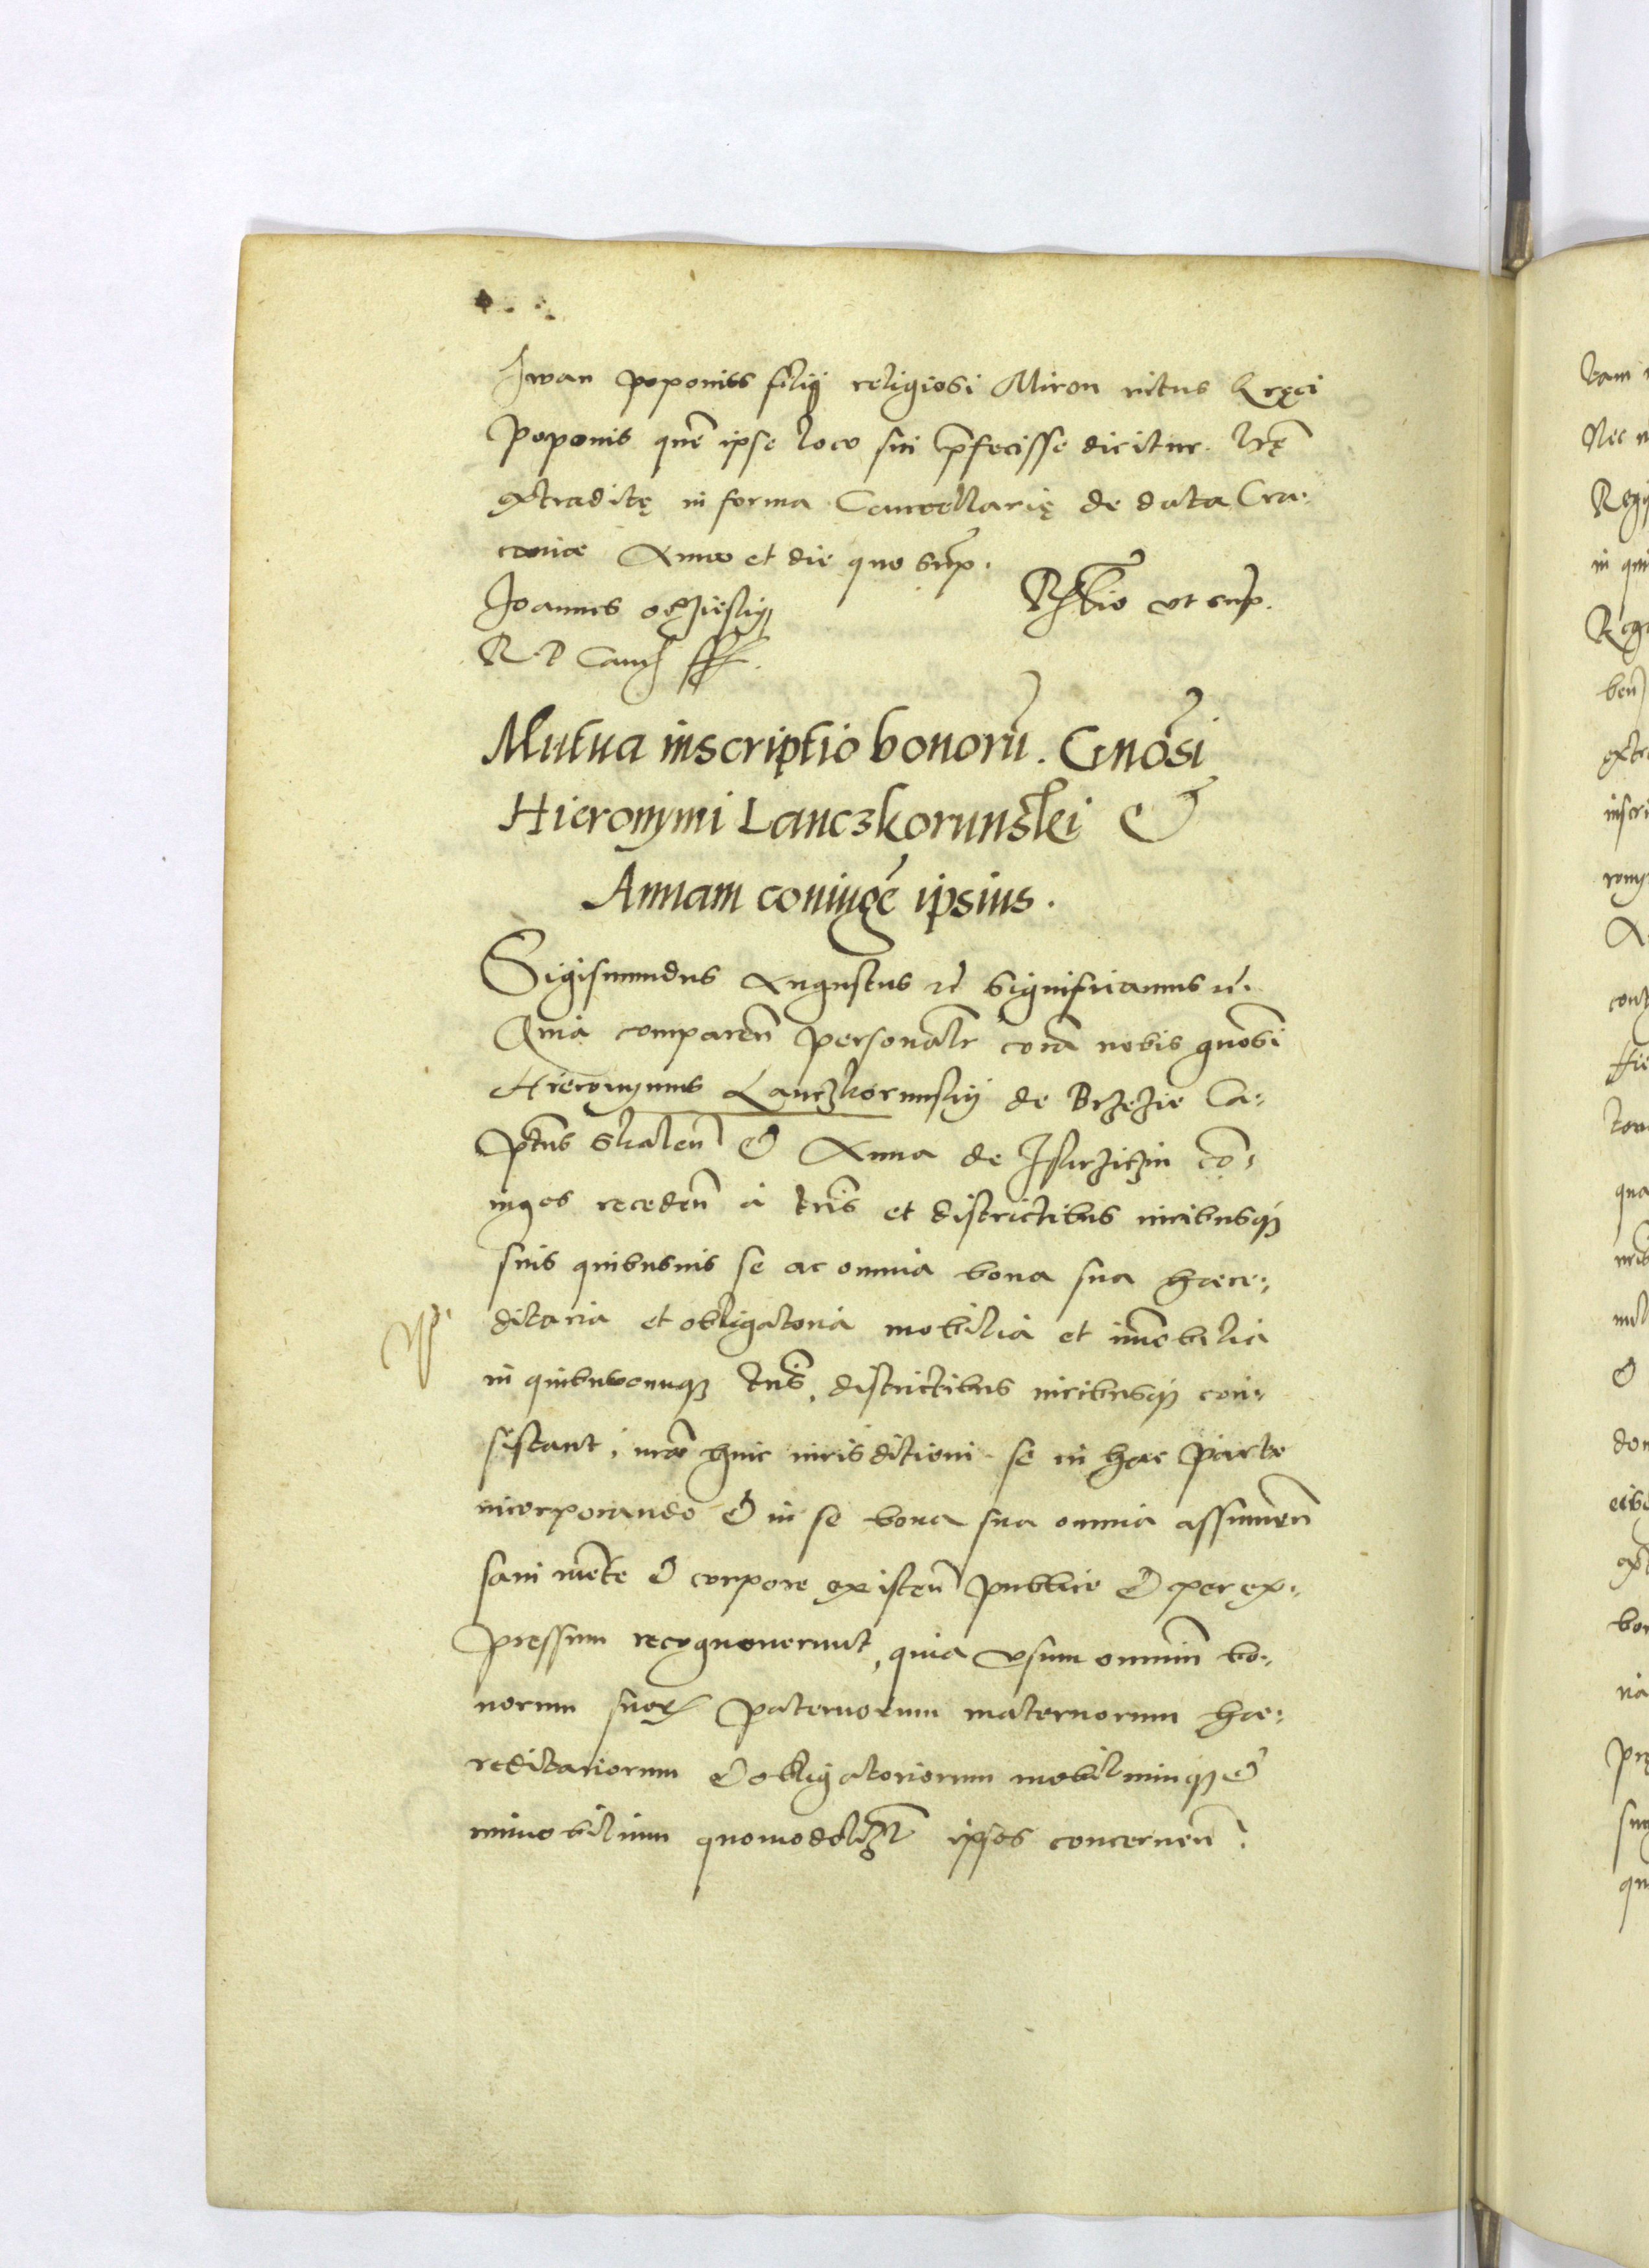 Iwan poponis filij religiosi Miron ritus Gręci
Poponis quē ipse loco sui p̄fecisse dicitur. Lrę
extraditę in forma Cancellarię de data Cra-
coviæ Anno et die quo sup̄.
Joannes oczieskij
R. P. Canc̄ sst.
R̄latio ut sup̄.
Mutua inscriptio bonorū. Gnōsi
Hieronymi Lanczkorunskei &
Annam coniugē ipsius.
Sigismundus Augustus rc̄ significamus rc̄.
Quia comparen̄ personalr̄ corā nobis gnōsi
Hieronymus Lanczkorunskij de Brzezie Ca-
ptn̄s Skalen̄ & Anna de cō-
iuges receden̄ à trīs et districtibus iuribusq̃
suis quibusuis se ac omnia bona sua hære-
ditaria et obligatoria mobilia et im̄obilia
in quibuscunq̃ trīs, districtibus iuribusq̃ con-
sistant, huic iurisditioni se in hac parte
incorporando & in se bona sua omnia assumen̄
sani mēte & corpore existen̄ publice & per ex-
pressum recognouerunt, quia usum omniū bo-
norum suor̃ paternorum maternorum hæ-
reditariorum & obligatoriorum mobiliumq̃ &
immobilium quomodolibꝫ ipsos concernen̄.